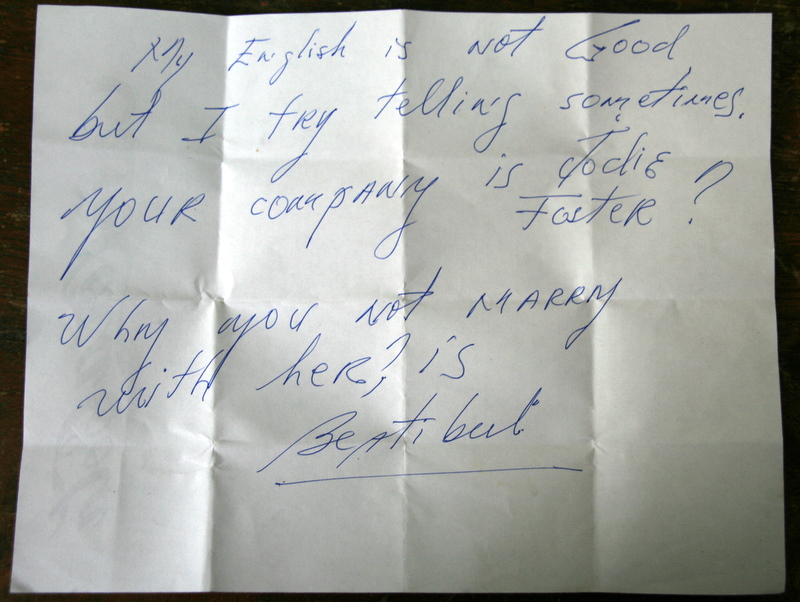 My English is not Good,
but I try telling sometimes.
your company is Jodie
Foster?
Why you not marry
with her? is
Beatibul